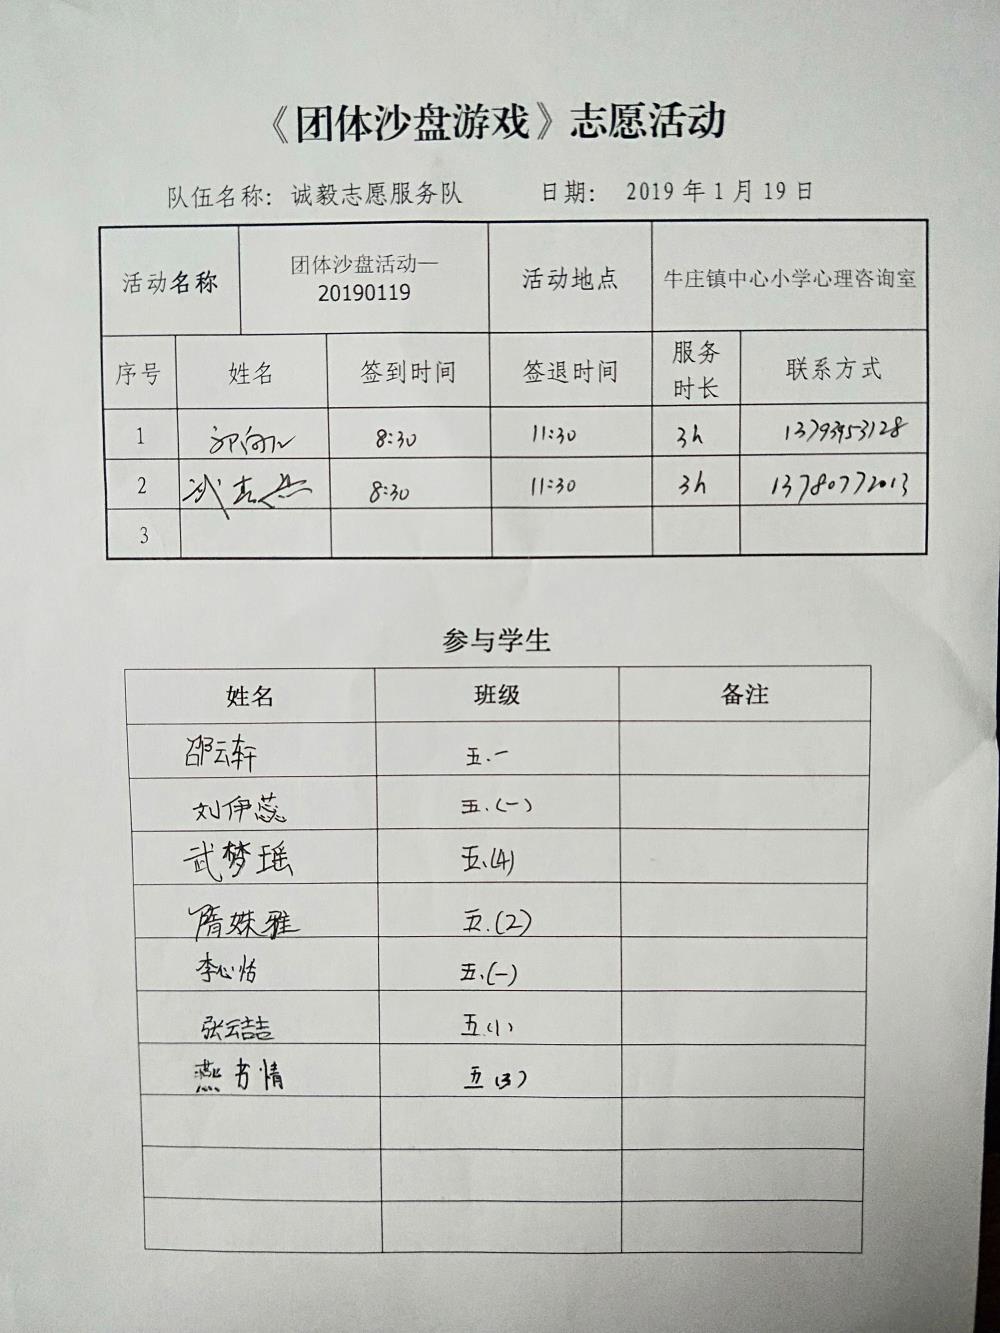 《团体沙盘游戏》志愿活动
队伍名称： 诚毅志愿服务队 日期： 2019 年 1 月 19 日
活动名称 团体沙盘活动— 20190119 活动地点 牛庄镇中心小学心理咨询室
序号 姓名 签到时间 签退时间 服务时长 联系方式
1 8:30 11:30 3h 13793953128
2 8:30 11:30 3h 13780772013
3
参与学生
姓名 班级 备注
邵云轩 五.一
刘伊蕊 五.(一)
武梦瑶 五.(4)
隋姝雅 五.(2)
李心怡 五.(一)
张云喆 五(1)
燕书情 五(3)